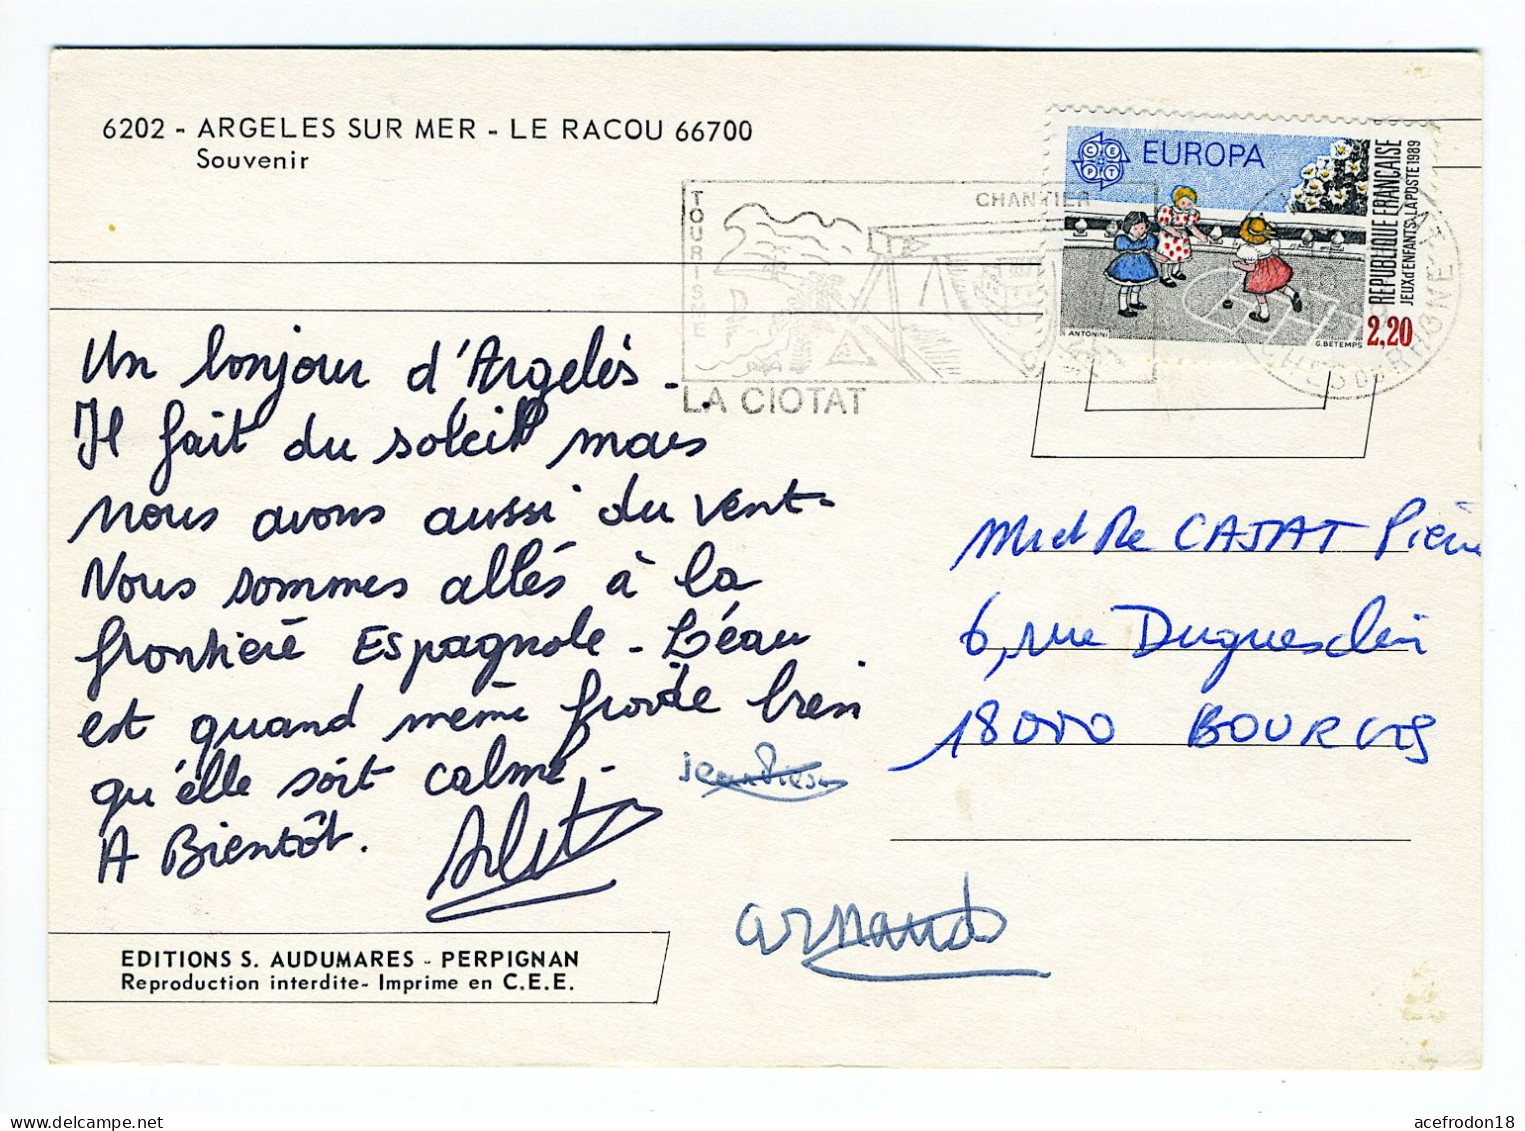 6202 - ARGELES SUR MER - LE RACOU 66700
Souvenir
EUROPA
C E P T
REPUBLIQUE FRANÇAISE
JEUX d'ENFANTS. LA POSTE 1989
2,20
ANTONINI
G. BETEMPS
TOURISME
CHANTIER
LA CIOTAT
BCHES DU RHONE
Un bonjour d'Argelès.
Il fait du soleil mais
nous avons aussi du vent.
Nous sommes allés à la
frontière Espagnole - L'éau
est quand même froide bien
qu'elle soit calme.
A Bientôt.
Arlet
jean Pierre
arnaud
Mr et Me CAJAT Pierre
6, rue Duguesclin
18000 BOURGES
EDITIONS S. AUDUMARES - PERPIGNAN
Reproduction interdite- Imprime en C.E.E.
acefrodon18